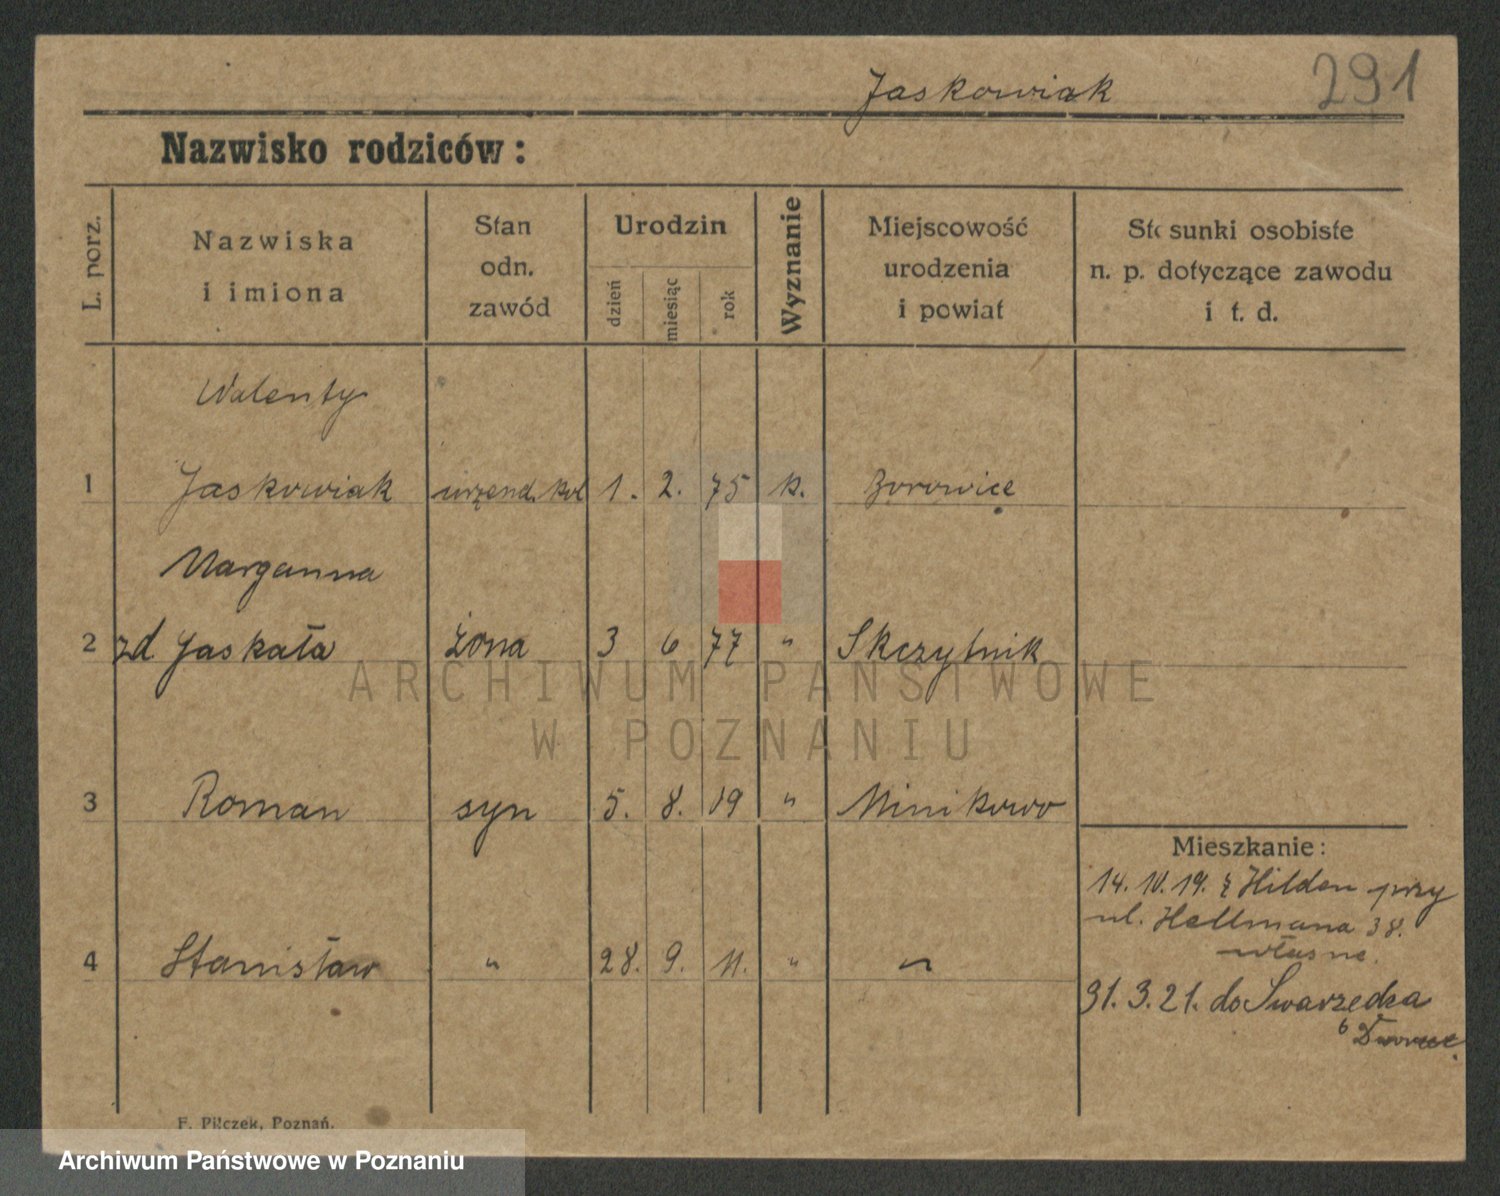 Jaskowiak
291
Nazwisko rodziców:
L. porz.
Nazwiska
i imiona
Stan
odn.
zawód
Urodzin
dzień
miesiąc
rok
Wyznanie
Miejscowość
urodzenia
i powiat
Stosunki osobiste
n. p. dotyczące zawodu
i t. d.
Walenty
1 Jaskowiak urzend. kol 1. 2. 75 k. Borowice
Marganna
2 zd. Jaskała żona 3 6 77 " Skczytnik
3 Roman syn 5. 8. 09 " Minikowo
4 Stanisław " 28. 9. 11. " "
Mieszkanie:
14. 10. 19. z Hilden przy
ul. Hellmana 38.
własne.
31. 3. 21. do Swarzędza
F. Pilczek, Poznań.
ARCHIWUM PAŃSTWOWE
W POZNANIU
Archiwum Państwowe w Poznaniu